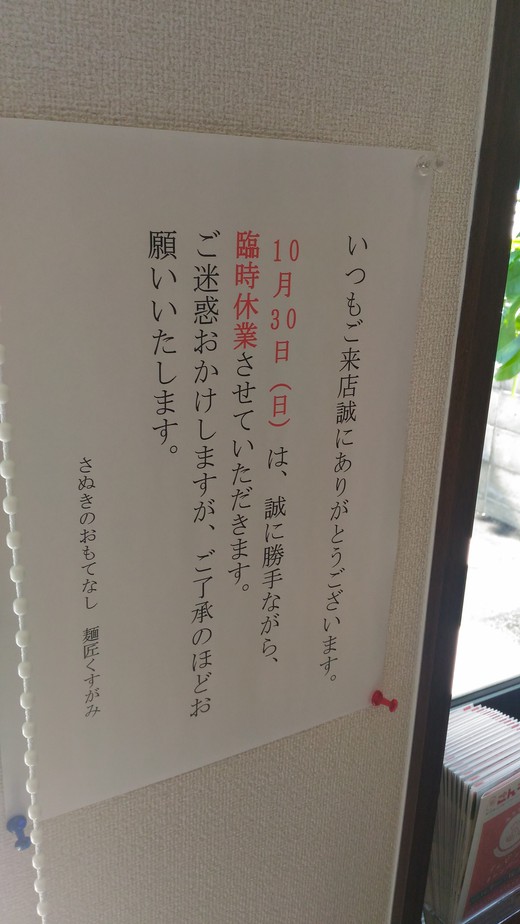 いつもご来店誠にありがとうございます。
10月30日（日）は、誠に勝手ながら、
臨時休業させていただきます。
ご迷惑おかけしますが、ご了承のほどお
願いいたします。
さぬきのおもてなし 麺匠くすがみ